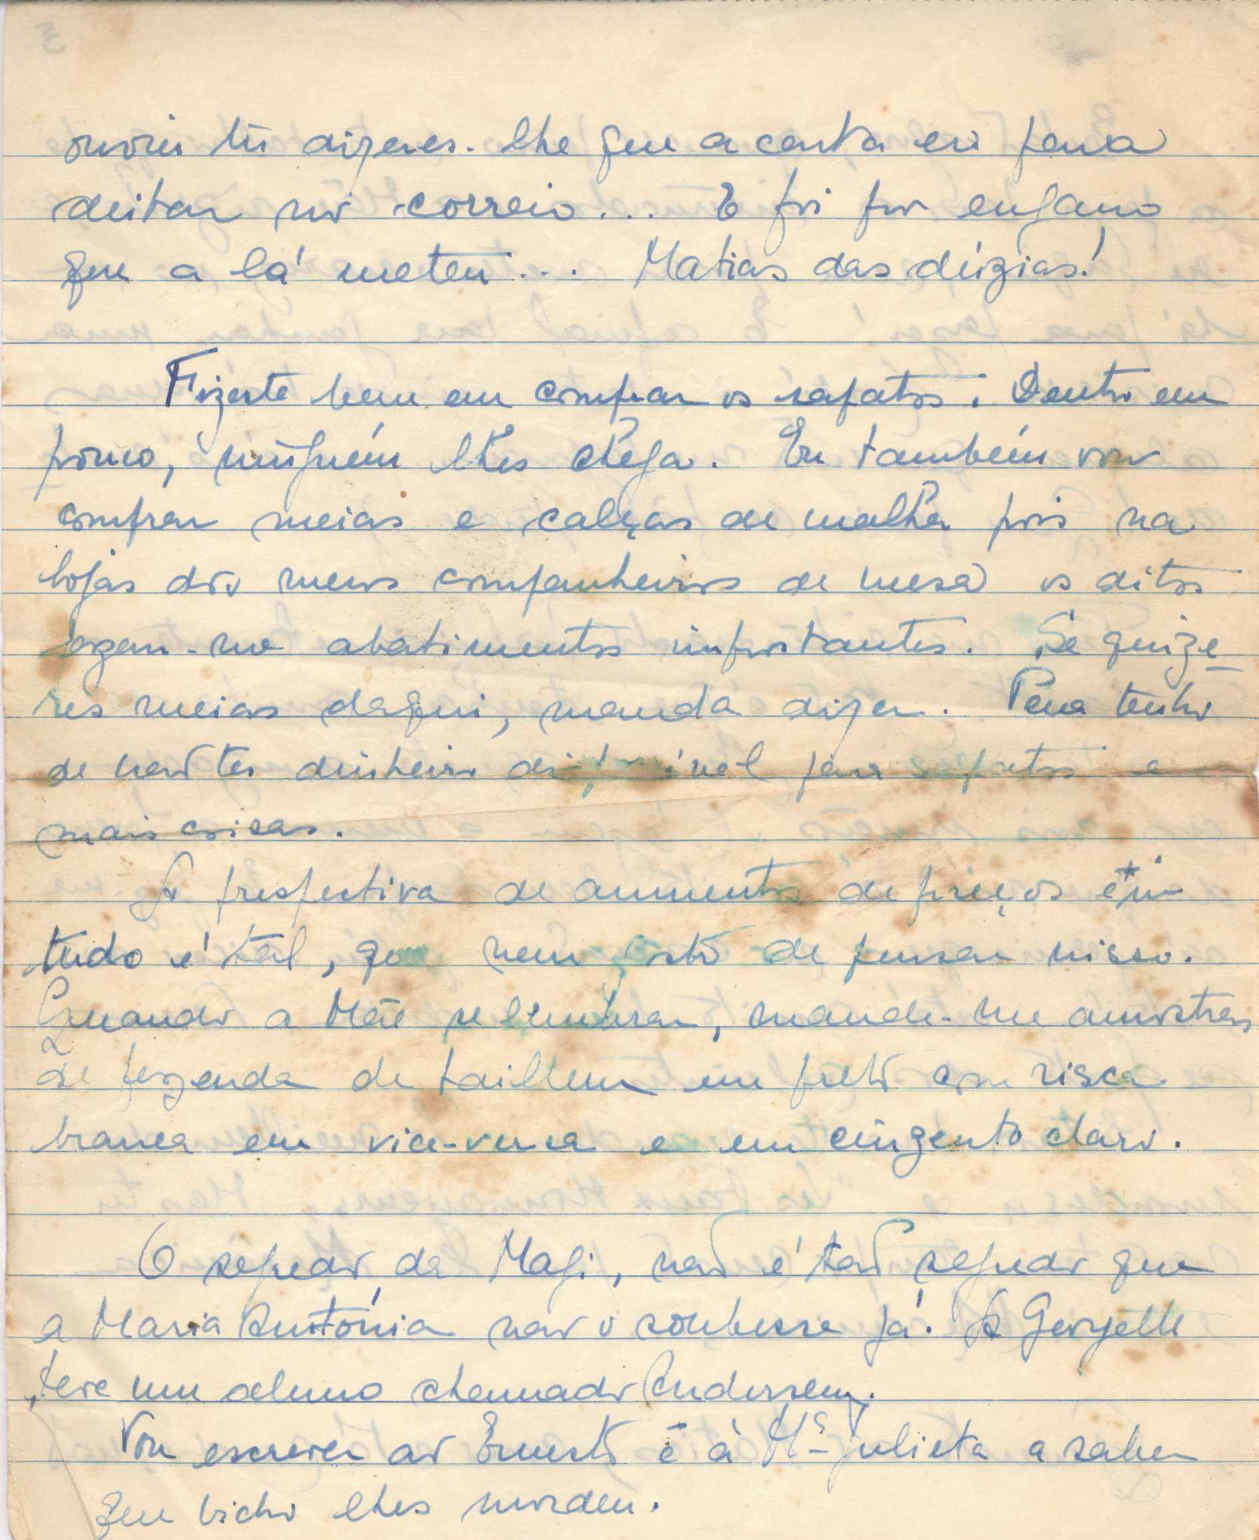 ouviu tu dizeres-lhe que a carta era para
deitar no correio... E foi por engano
que a lá meteu... Matias das dúzias!
Fizeste bem em comprar os sapatos. Dentro em
pouco, ninguém lhes chega. Eu também vou
comprar meias e calças de malha pois na
lojas dos meus companheiros de mesa os ditos
fazem-me abatimentos importantes. Se quize-
res meias daqui, manda dizer. Pena tenho
de não ter dinheiro disponível para sapatos e
mais coisas.
A prespectiva de aumentos de preços em
tudo é tal, que nem gosto de pensar nisso.
Quando a Mãe se lembrar, mande-me amostras
de fazenda de tailleur em preto com risca
branca em vice-versa e em cinzento claro.
O segredo da Magi, não é tão segredo que
a Maria Antónia não o soubesse já. A Georgette
teve um aluno chamado Anderssen.
Vou escrever ao Ernesto e à Mª Julieta a saber
que bicho lhes mordeu.